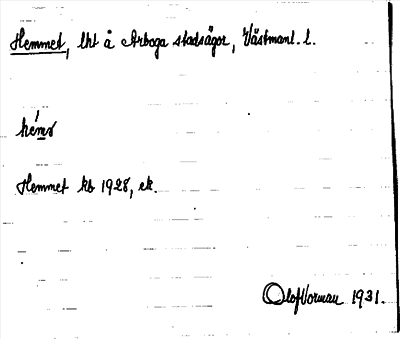 Hemmet, lht å Arboga stadsägor, Västmanl. l.
Hemmet kb 1928, ek.
Olof Vorman 1931.